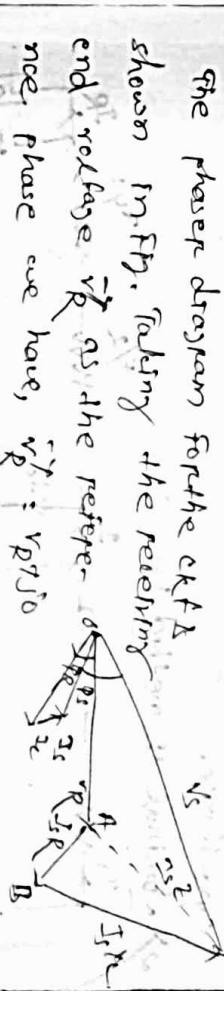 The phasor diagram for the ckt is
shown in Fig. Taking the receiving
end voltage V⃗R as the refere-
nce phase we have, V⃗R = VR + j0
O
Vs
φR
φs
Is
A
VR
IsR
B